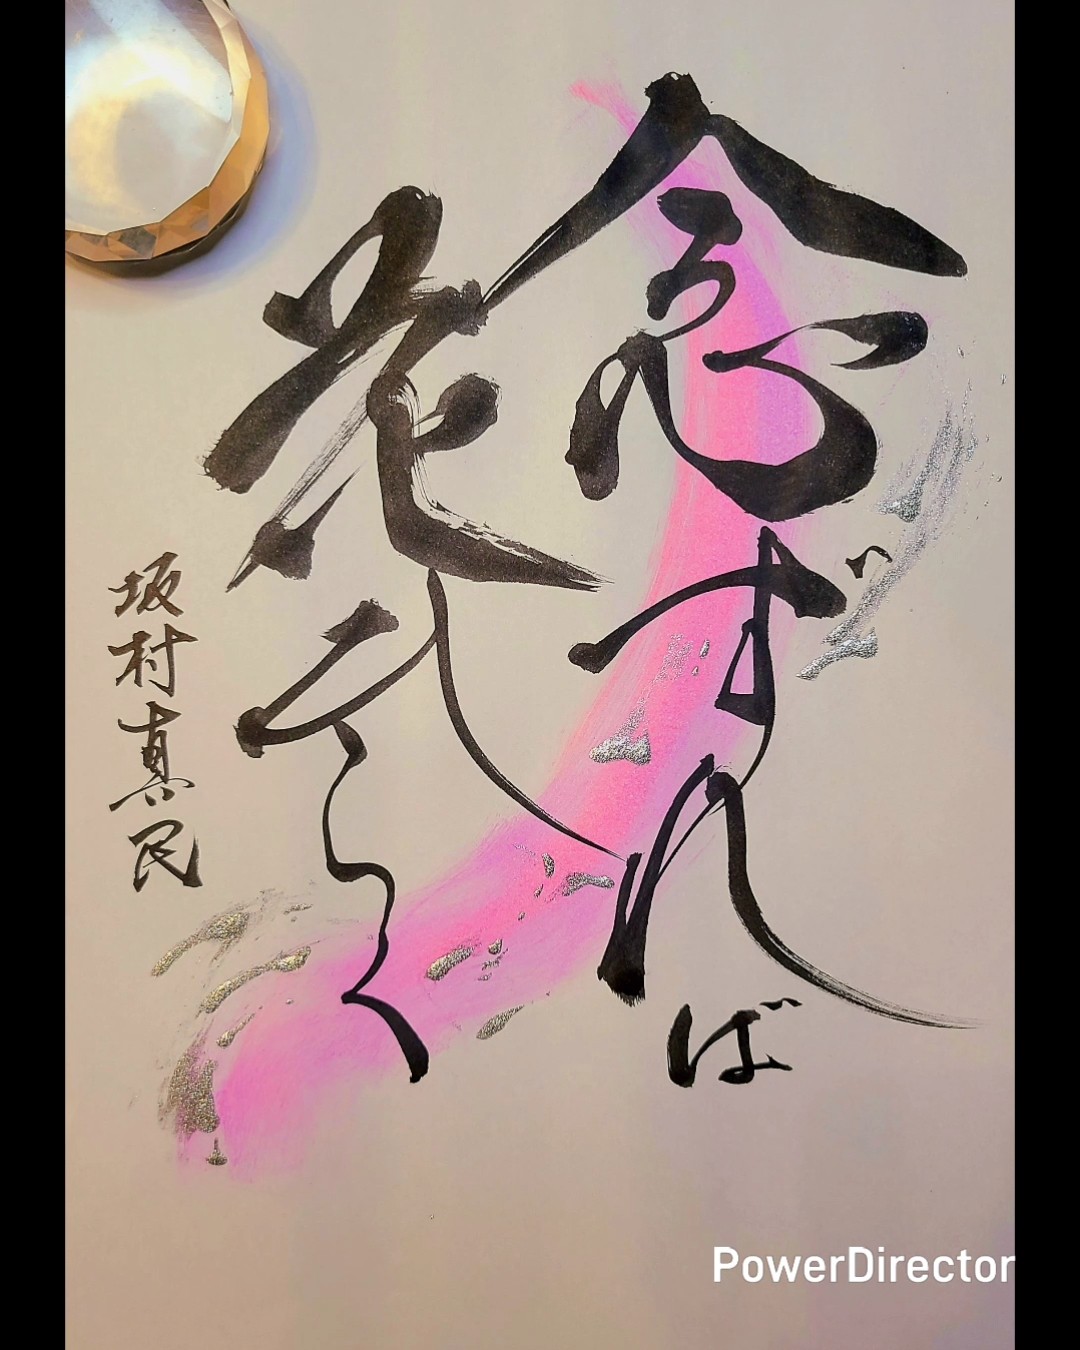 念ずれば
花ひらく
坂村真民
PowerDirector